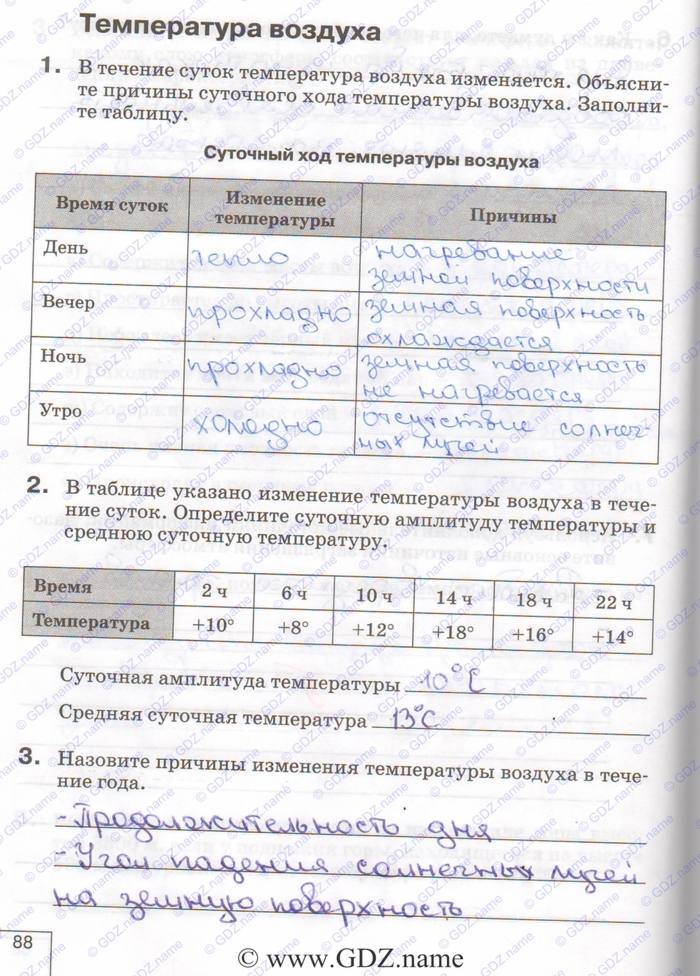 Температура воздуха
1. В течение суток температура воздуха изменяется. Объясни-
те причины суточного хода температуры воздуха. Заполни-
те таблицу.
Суточный ход температуры воздуха
Время суток Изменение температуры Причины
День тепло нагревание
земной поверхности
Вечер прохладно земная поверхность
охлаждается
Ночь прохладно земная поверхность
не нагревается
Утро холодно отсутствие солнеч-
ных лучей
2. В таблице указано изменение температуры воздуха в тече-
ние суток. Определите суточную амплитуду температуры и
среднюю суточную температуру.
Время 2 ч 6 ч 10 ч 14 ч 18 ч 22 ч
Температура +10° +8° +12° +18° +16° +14°
Суточная амплитуда температуры 10°C
Средняя суточная температура 13°C
3. Назовите причины изменения температуры воздуха в тече-
ние года.
- Продолжительность дня
- Угол падения солнечных лучей
на земную поверхность
88
© www.GDZ.name